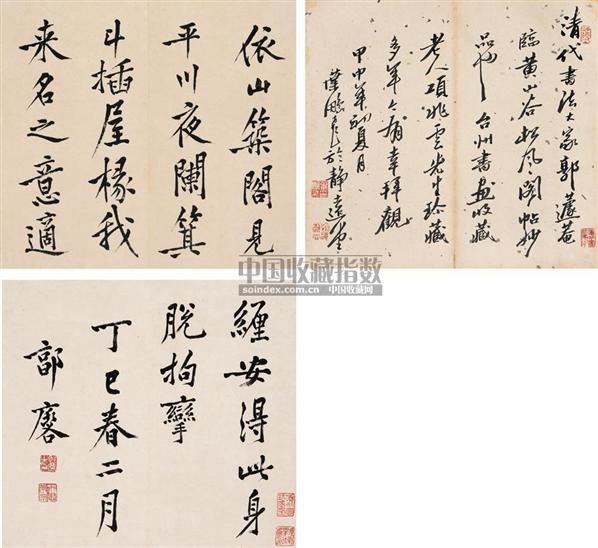 依山築閣見
平川夜闌箕
斗插屋椽我
来名之意適
清代書法大家郭蘧菴
臨黄山谷松風閣帖妙
品也 台州書画收藏
老人項兆雲先生珍藏
多年今有幸拜觀
甲申年初夏月
於静遠堂
中国收藏指数
soindex.com.cn 中国收藏网
纏安得此身
脱拘攣
丁巳春二月
郭麐